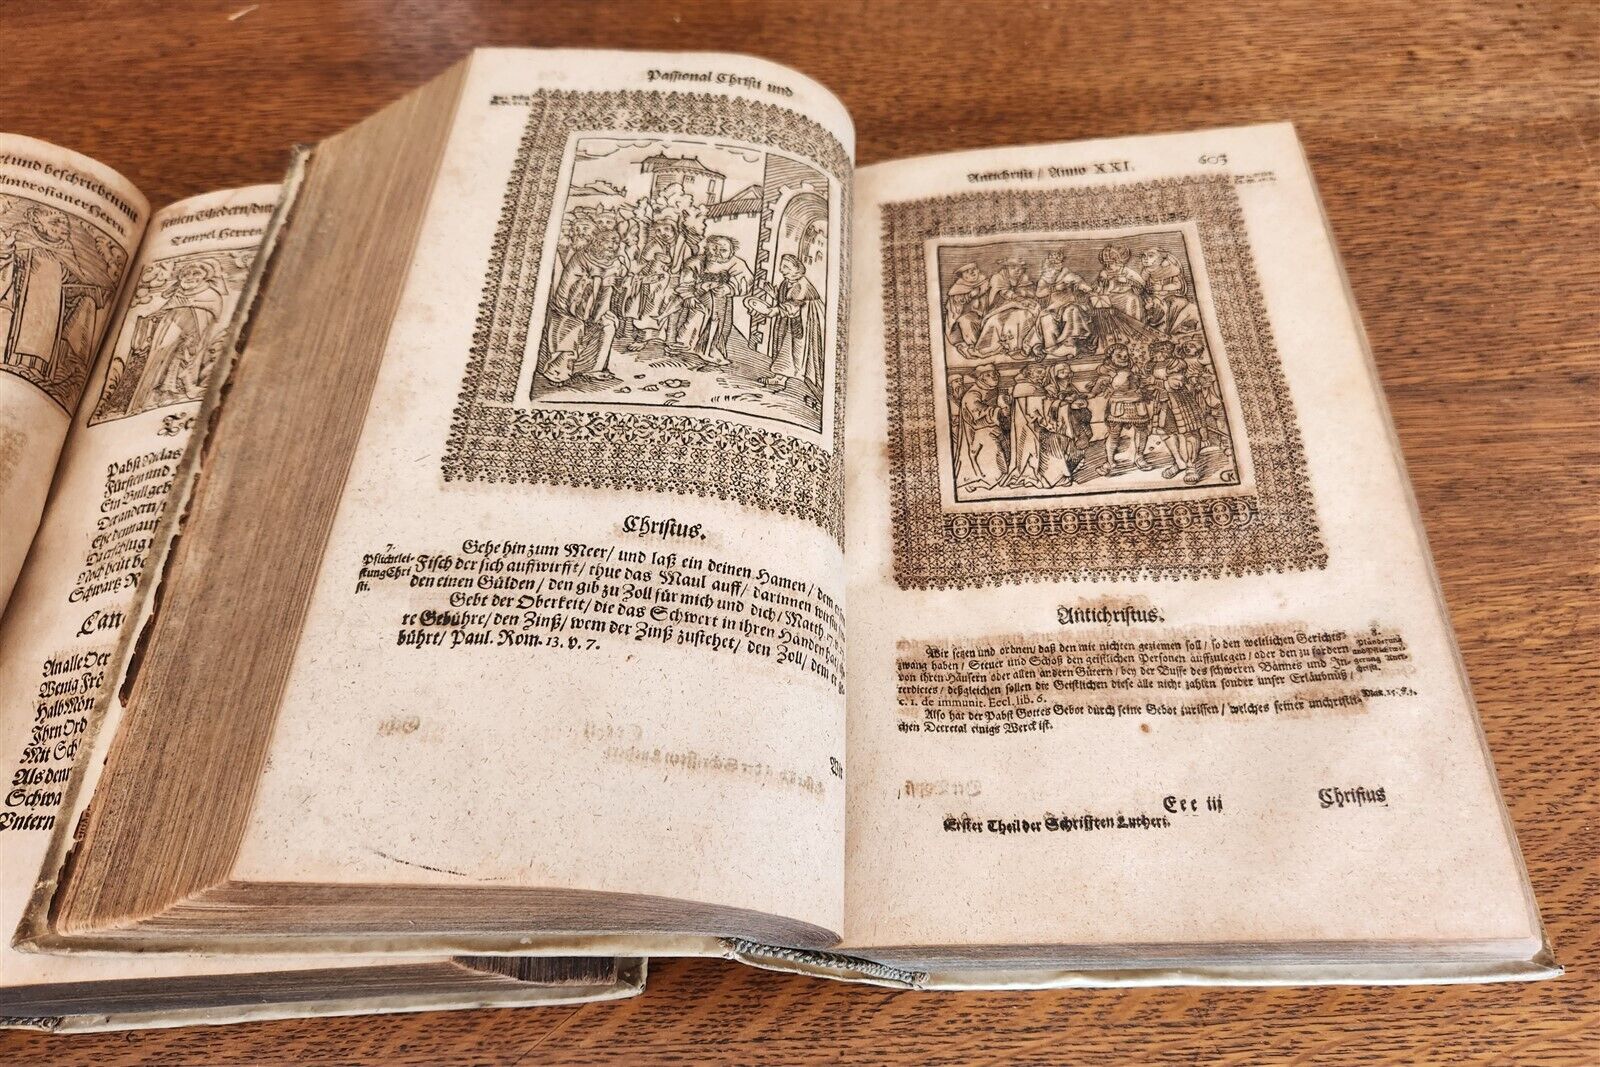 et und beschrieben mit
Ambrosianer Herrn.
seinen Gliedern/
Tempel Herren
Pabst
Fürsten und
Ein Bullgeb
Der andern/
Ehe dem auff
Noch heut
Schwartz R
An alle Oer
Wenig Frö
Halb Mön
Ihrn Ord
Mit Sch
Als denn
Schwa
Vntern
Passional Christi und
CK
Christus.
7.
Pflichtlei-
stung Chri
sti.
Gehe hin zum Meer/ und laß ein deinen Hamen/ dem
Fisch der sich auffwirfft/ thue das Maul auff/ darinnen wirstu
den einen Gülden/ den gib zu Zoll für mich und dich/ Matth. 17.
Gebt der Oberkeit/ die das Schwert in ihren Händen hat/
re Gebühre/ den Zinß/ wem der Zinß zustehet/ den Zoll/ dem er
bührt/ Paul. Rom. 13. v. 7.
Antichristi/ Anno XXI. 603
CK
Antichristus.
Wir setzen und ordnen/ daß den mit nichten geziemen soll/ so den weltlichen Gerichts-
zwang haben/ Steuer und Schoß den geistlichen Personen auffzulegen/ oder den zu fordern
von ihren Häusern oder allen andern Gütern/ bey der Busse des schweren Bannes und In-
terdictes/ deßgleichen sollen die Geistlichen diese alle nicht zahlen sonder unser Erläubnüß/
c. 1. de immunit. Eccl. lib. 6.
Also hat der Pabst Gottes Gebot durch seine Gebot zurissen/ welches seiner unchristli-
chen Decretal einigs Werck ist.
8.
Pländerung
Eee iij
Christus
Erster Theil der Schrifften Lutheri.